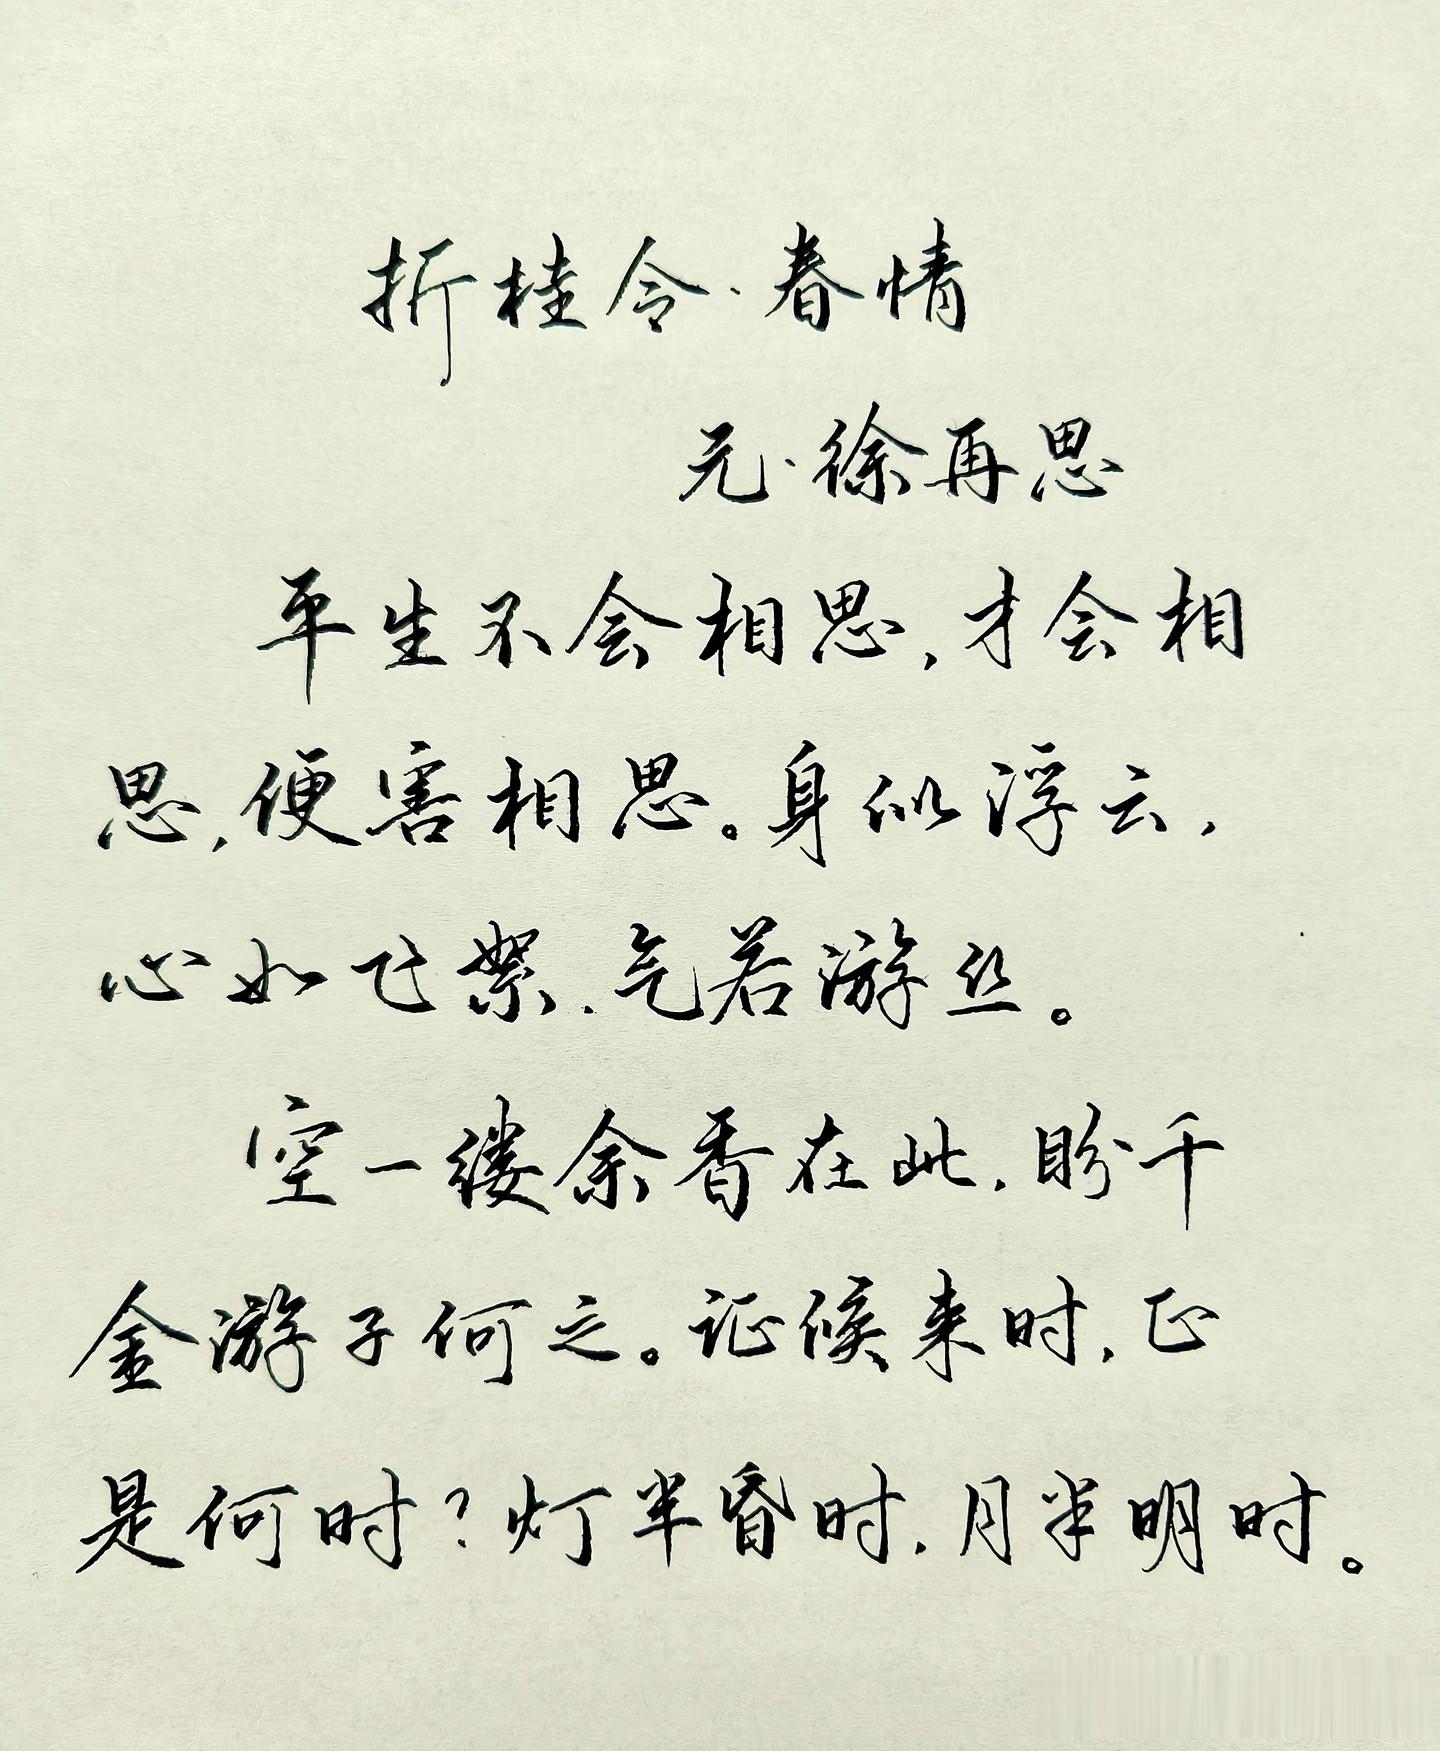 折桂令·春情
元·徐再思
平生不会相思,才会相
思,便害相思。身似浮云,
心如飞絮,气若游丝。
空一缕余香在此,盼千
金游子何之。证候来时,正
是何时?灯半昏时,月半明时。